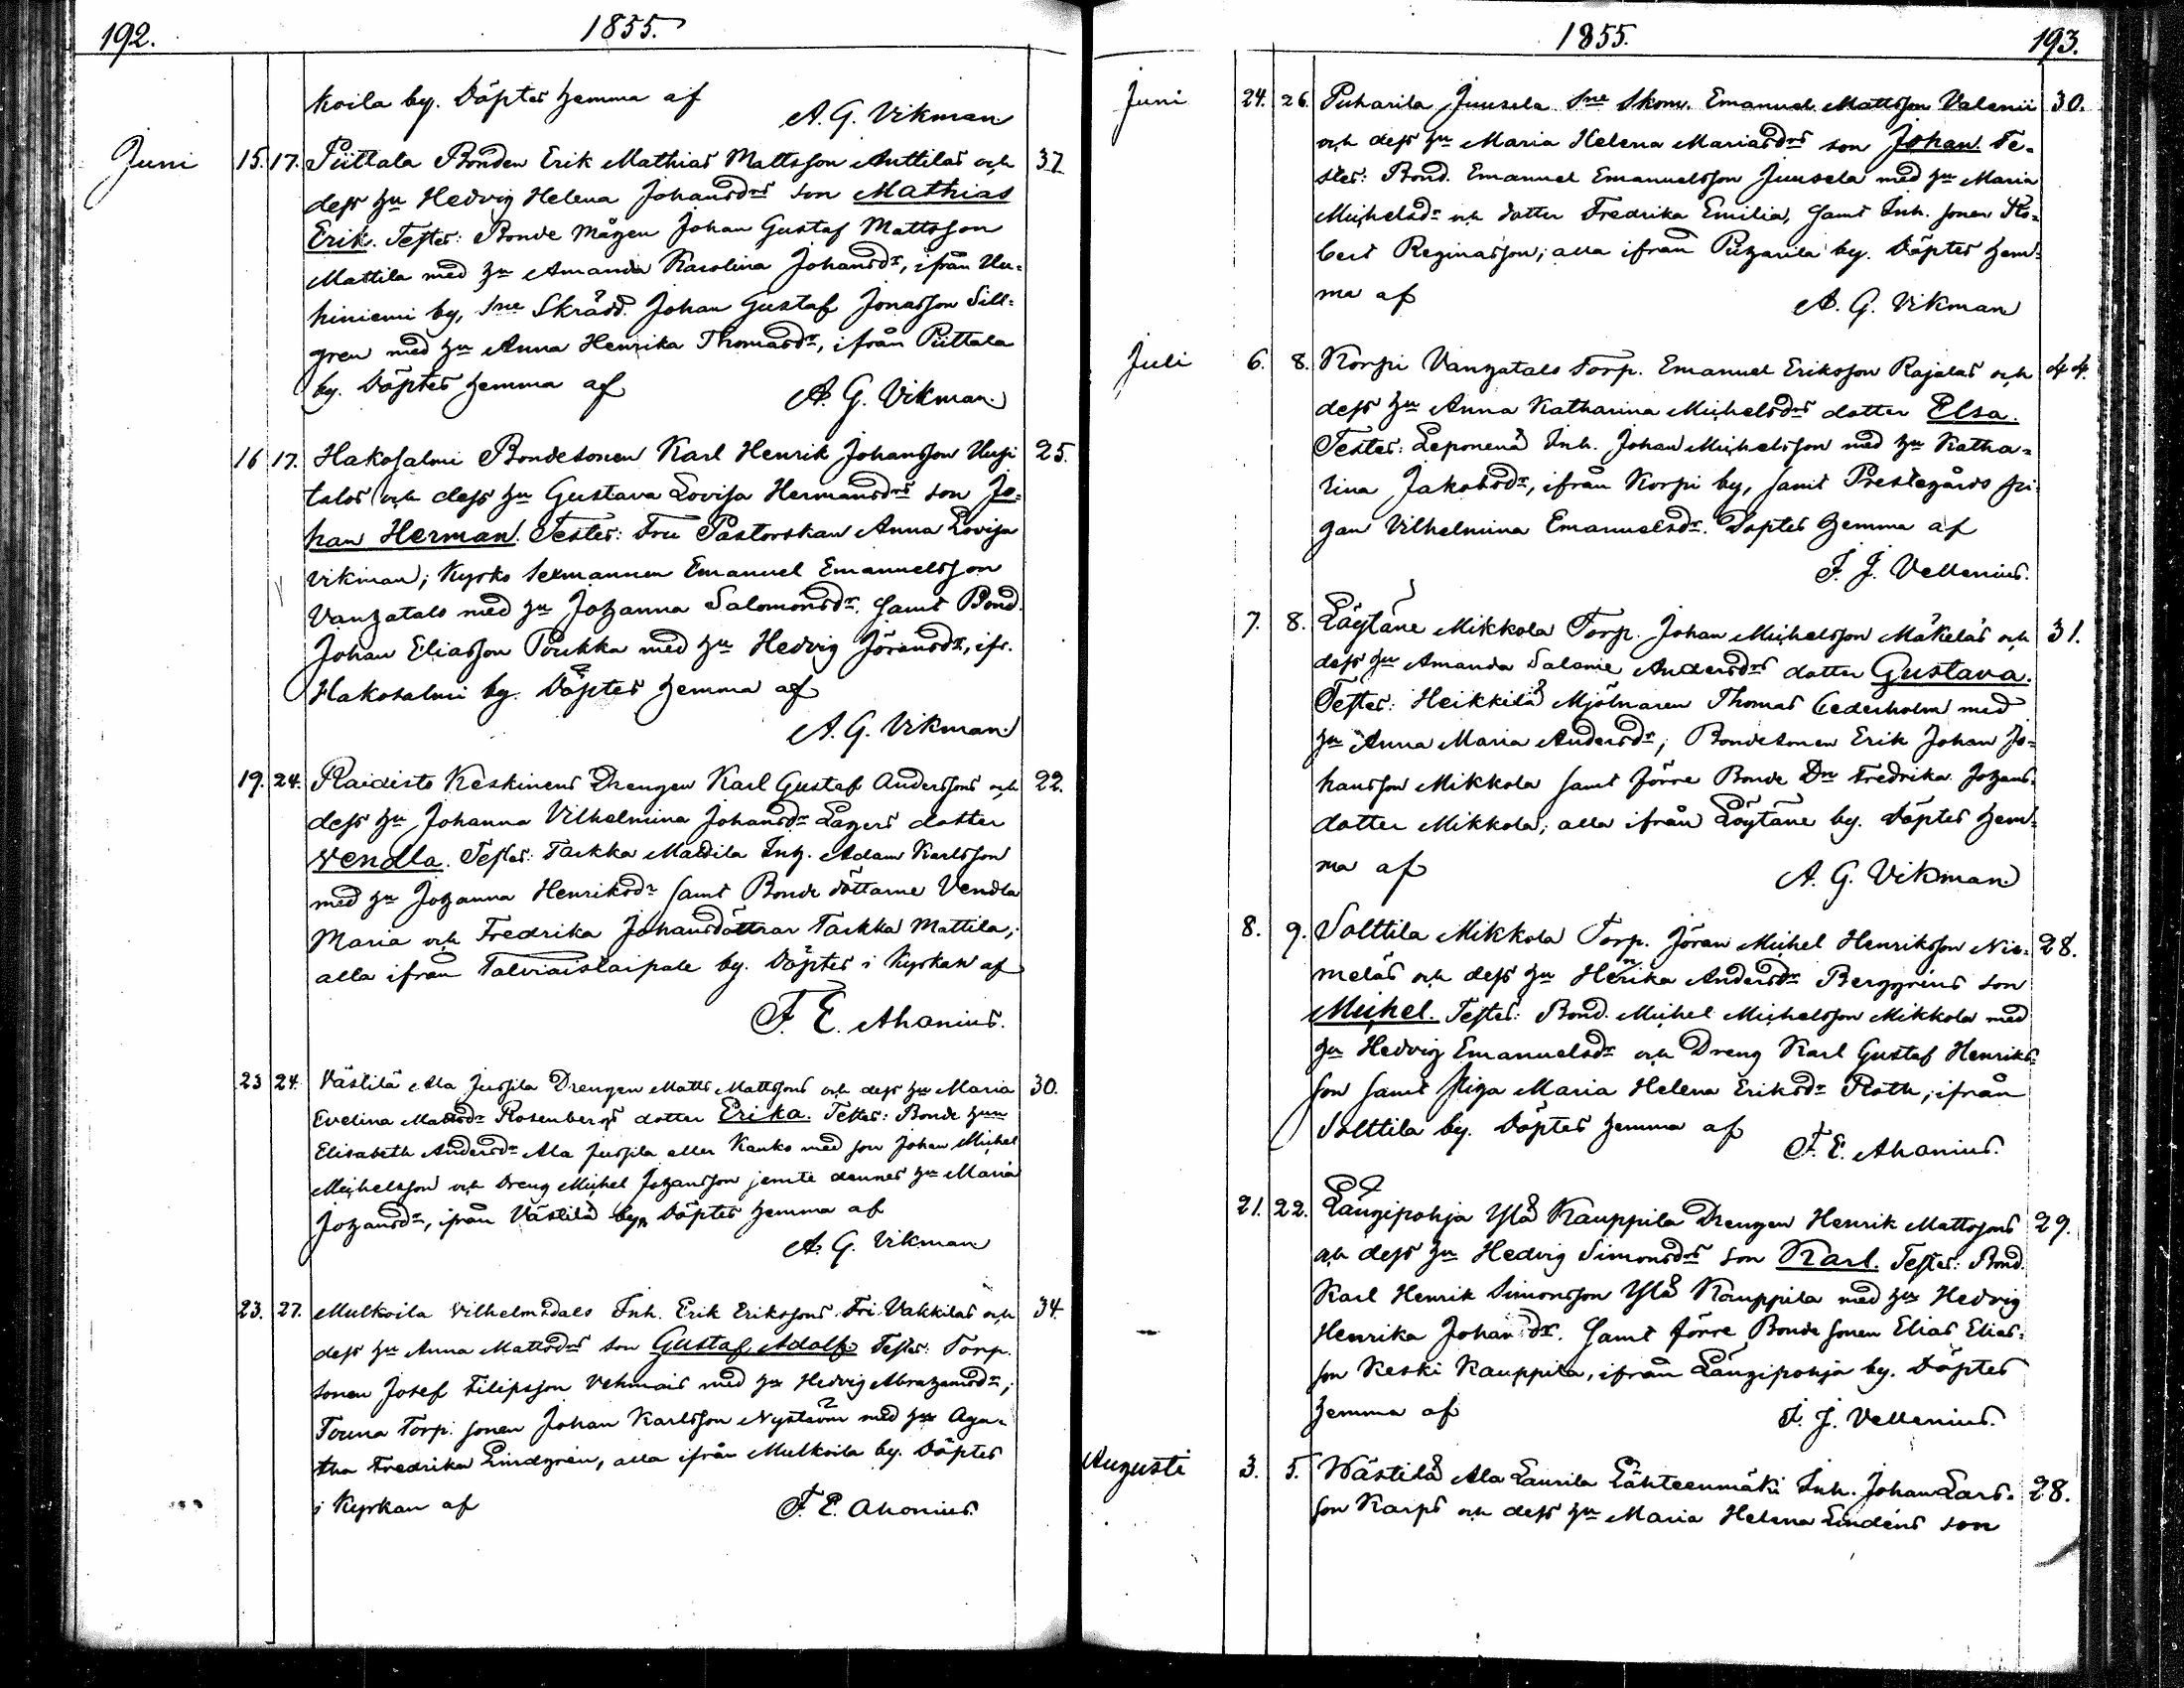 192.
1855.
koila by. Döptes hemma af
A. G. Vikman
Juni 15. 17. Piittala Bonden Erik Mathias Mattsson Anttilas och 37.
dess hu Hedvig Helena Johansdrs son Mathias
Erik. Testes: Bonde mågen Johan Gustaf Mattsson
Mattila med hu Amanda Karolina Johansdr, ifrån Uu-
hiniemi by, Sne Skrädd. Johan Gustaf Jonasson Sill-
gren med hu Anna Henrika Thomasdr, ifrån Piittala
by. Döptes hemma af
A. G. Vikman.
16 17. Hakosalmi Bondesonen Karl Henrik Johansson Uusi 25.
talos och dess hu Gustava Lovisa Hermansdrs son Jo-
han Herman. Testes: Fru Pastorskan Anna Lovisa
Vikman; Kyrko Sexmannen Emanuel Emanuelsson
Vanhatalo med hu Johanna Salomonsdr. samt Bond.
Johan Eliasson Poukka med hu Hedvig Jöransdr, ifr.
Hakosalmi by. Döptes hemma af
A. G. Vikman.
19. 24. Raidisto Keskinens Drengen Karl Gustaf Anderssons och 22.
dess hu Johanna Vilhelmina Johansdr Lagers dotter
Vendla. Testes: Tarkka Mattila Inh. Adam Karlsson
med hu Johanna Henriksdr samt Bonde döttarne Vendla
Maria och Fredrika Johansdöttrar Tarkka Mattila,
alla ifrån Talviaistaipale by. Döptes i Kyrkan af
F. E. Ahonius.
23 24. Västilä Ala Jussila Drengen Matts Mattssons och dess hu Maria 30.
Evelina Mattsdr Rosenbergs dotter Erika. Testes: Bonde hun
Elisabeth Andersdr Ala Jussila eller Kauko med son Johan Michel
Michelsson och Dreng Michel Johansson jemte dennes hu Maria
Johansdr, ifrån Västilä by. Döptes hemma af
A. G. Vikman
23. 27. Mulkoila Vilhelmsdals Inh. Erik Erikssons Fri Vakkilas och 34.
dess hu Anna Mattsdrs son Gustaf Adolf. Testes: Torp.
sonen Josef Filipsson Vehmais med hu Hedvig Abrahamsdr;
Touna Torp. sonen Johan Karlsson Nyström med hu Aga-
tha Fredrika Lindgren, alla ifrån Mulkoila by. Döptes
i Kyrkan af
F. E. Ahonius.
1855.
193.
Juni 24. 26. Puharila Juusela Sne Skom. Emanuel Mattsson Valenii 30.
och dess hu Maria Helena Mariasdrs son Johan. Te-
stes: Bond. Emanuel Emanuelsson Juusela med hu Maria
Michelsdr och dotter Fredrika Emilia, samt Inh. sonen Ro-
bert Reginasson; alla ifrån Puharila by. Döptes hem-
ma af
A. G. Vikman
Juli 6. 8. Korpi Vanhatalo Torp. Emanuel Eriksson Rajalas och 44.
dess hu Anna Katharina Michelsdrs dotter Elsa.
Testes: Leponens Inh. Johan Michelsson med hu Katha-
rina Jakobsdr, ifrån Korpi by, samt Prestegårds pi-
gan Vilhelmina Emanuelsdr. Döptes hemma af
F. J. Vellenius.
7. 8. Löytäne Mikkola Torp. Johan Michelsson Mäkeläs och 31.
dess hu Amanda Salonie Andersdrs dotter Gustava.
Testes: Heikkilä Mjölnaren Thomas Cederholm med
hu Anna Maria Andersdr; Bondesonen Erik Johan Jo-
hansson Mikkola samt förre Bonde Dn Fredrika Johans-
dotter Mikkola; alla ifrån Löytäne by. Döptes hem-
ma af
A. G. Vikman.
8. 9. Solttila Mikkola Torp. Jöran Michel Henriksson Nie- 28.
meläs och dess hu Henrika Andersdr Berggrens son
Michel. Testes: Bond. Michel Michelsson Mikkola med
hu Hedvig Emanuelsdr och Dreng Karl Gustaf Henriks-
son samt piga Maria Helena Eriksdr Roth, ifrån
Solttila by. Döptes hemma af
F. E. Ahonius.
21. 22. Längipohja Ylä Kauppila Drengen Henrik Mattssons 29.
och dess hu Hedvig Simonsdrs son Karl. Testes: Bond.
Karl Henrik Simonsson Ylä Kauppila med hu Hedvig
Henrika Johansdr. samt förre Bonde sonen Elias Elias-
son Keski Kauppila, ifrån Längipohja by. Döptes
hemma af
F. J. Vellenius.
Augusti 3. 5. Wästilä Ala Laurila Lähteenmäki Inh. Johan Lars- 28.
son Karps och dess hu Maria Helena Lindens son